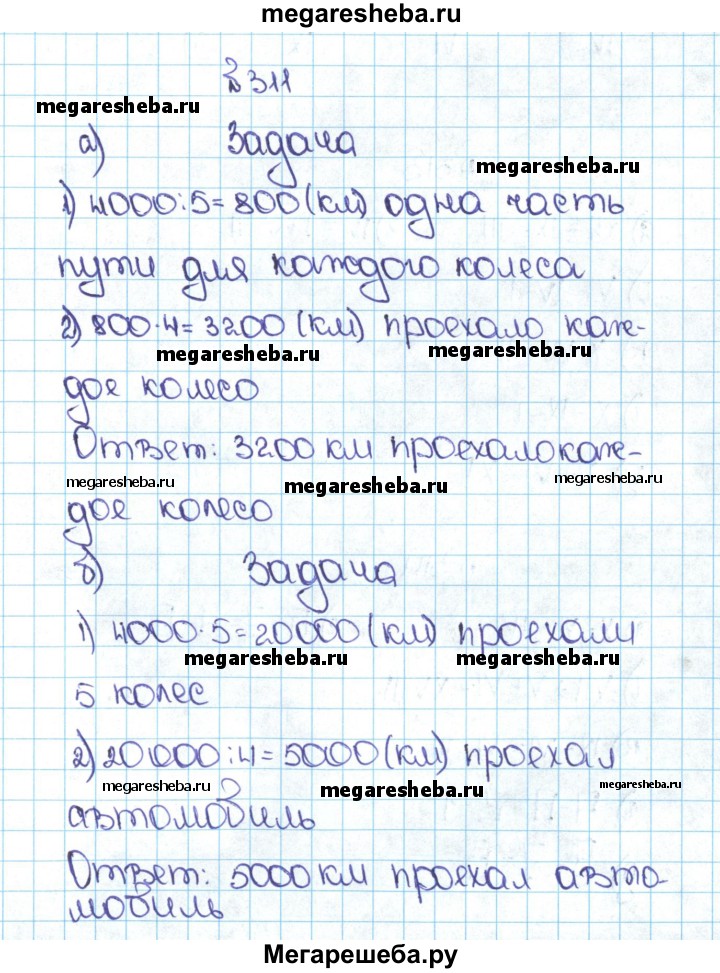 megaresheba.ru
№311
megaresheba.ru
а) Задача
megaresheba.ru
1) 4000:5=800(км) одна часть
пути для каждого колеса
2) 800·4=3200 (км) проехало каж-
megaresheba.ru megaresheba.ru
дое колесо
Ответ: 3200 км проехало каж-
megaresheba.ru megaresheba.ru megaresheba.ru
дое колесо
б) Задача
1) 4000·5=20000(км) проехали
megaresheba.ru megaresheba.ru
5 колес
2) 20000:4=5000(км) проехал
megaresheba.ru megaresheba.ru megaresheba.ru
автомобиль
Ответ: 5000 км проехал авто-
мобиль
Мегарешеба.ру